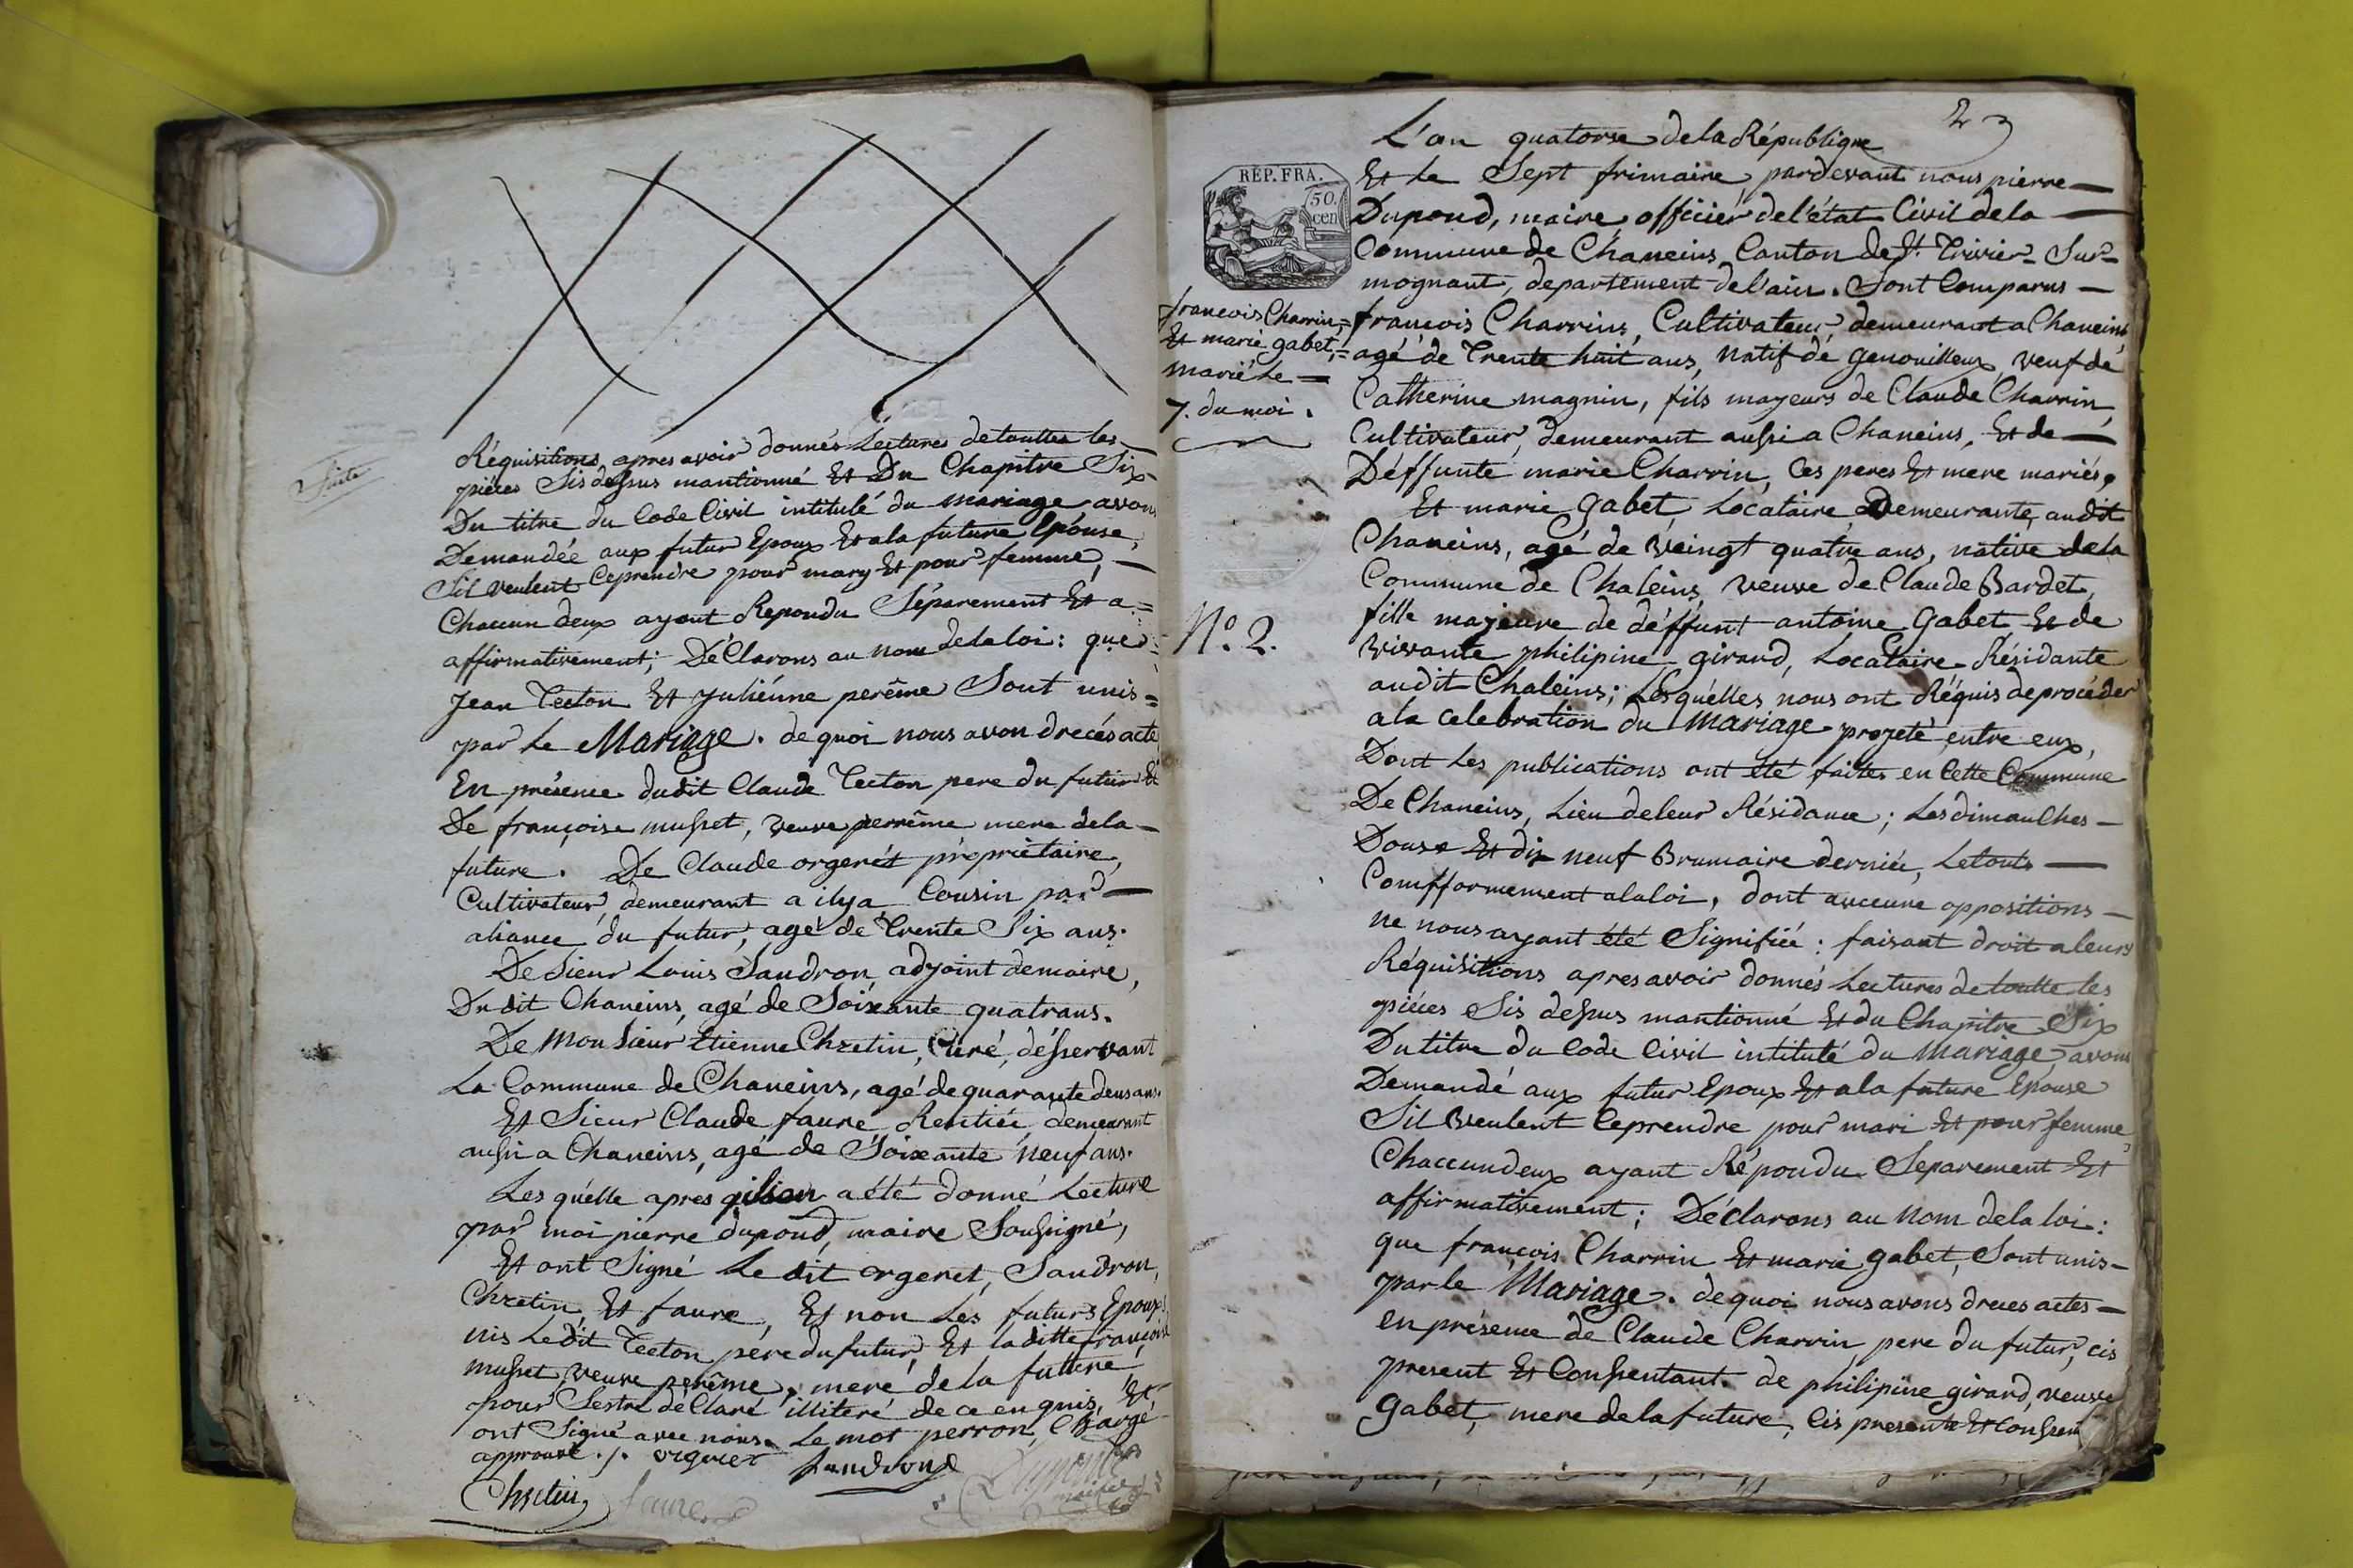 Suitte
Réquisitions, apres avoir donnés Lectures detouttes les
piéces Sis dessus mantionné Et Du Chapitre Six
Du titre du Code Civil intitulé du Mariage avons
Demandée aux futur Epoux Et ala future Epouse,
Sil veulent Ceprendre pour mary Et pour femme, —
Chacun deux ayant Repondu Séparement Et a=
affirmativement; DéClarons au nom delaloi: que
Jean Tecton Et Juliénne perême Sont unis=
par Le Mariage. de quoi nous avon drecés acte
En présence dudit Claude Tecton pere du futur Et
De françoise musset, veuve perrême mere dela —
future. De Claude orgerét propriétaire,
Cultivateur, demeurant a ilya Cousin par —
aliance du futur, agé de Trente Six ans.
De Sieur Louis Sandron, adjoint demaire,
Du dit Chaneins, agé de Soixante quatrans.
De Monsieur Etienne Chretin, Curé, déservant
La Commune de Chaneins, agé de quarante deus ans.
Et Sieur Claude faure Rentiée, demeurant
aussi a Chaneins, agé de Soixante neuf ans.
Les quélle apres qilson a été donné Lecture
par moi pierre dupond, maire Soussigné,
Et ont Signé Le dit orgeret, Sandron,
Chretin, Et faure, Et non Les futurs Epoux,
nis Ledit Tecton pere du futur, Et laditte françoise
musset, veuve perême, mere de la future,
pour Sestre déClaré illiteré de ce enquis, Et
ont Signé avec nous. Le mot perron, Chargé
approuvé ./. orgeret Sandron
Chretin faure Dupond maire
23
RÉP. FRA.
50. cen
L'an quatorse dela République
Et Le Sept frimaire, pardevant nous pierre —
Dupond, maire, officier del'état Civil dela —
Commune de Chaneins, Canton de St. Trivier-Sur-
mognant, departement del'ain. Sont Comparus —
francois Charrin,=
Et marie gabet,=
marié Le =
7. du moi.
francois Charrins, Cultivateur, demeurant a Chaneins,
agé de Trente huit ans, Natif de genouilleux, veuf de
Catherine magnin, fils mayeurs de Claude Charrin,
Cultivateur, demeurant aussi a Chaneins, Et de —
Déffunte marie Charrin, Ces peres Et mere mariés.
Et marie Gabet, Locataire, Demeurante, audit
Chaneins, agé de Veingt quatre ans, native dela
Commune de Chaleins, veuve de Claude Bardet,
N.o 2.
fille majeure de déffunt antoine Gabet Et de
Vivante philipine girand, Locataire Résidante
audit Chaleins; Lesquélles nous ont Réquis deprocéder
ala celebration du Mariage projeté entre eux,
Dont Les publications ont été faites en Cette Commune
De Chaneins, Lieu deleur Résidance; Les dimanches —
Douse Et dix neuf Brumaire derniée, Letouts —
Comfformement alaloi, dont auceune oppositions —
ne nous ayant été Signifiée: faisant droit a leurs
Réquisitions apres avoir donnés Lectures de toutte les
piéces Sis dessus mantionné Et du Chapitre Six
Du titre du Code Civil intitulé du Mariage, avons
Demandé aux futur Epoux Et ala future Epouse
Sil Veulent Ceprendre pour mari Et pour femme,
Chaceundeux ayant Répondu Separement Et
affirmativement; Déclarons au Nom dela loi:
que françois Charrin Et marie gabet, Sont unis —
par le Mariage. dequoi nous avons dreces actes —
en présence de Claude Charrin, pere du futur, cis
present Et Consentant. de philipine girand, veuve
Gabet, mere de la future, Cis presente Et Consen